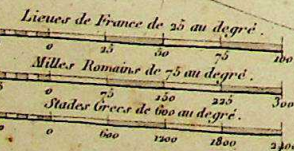 Lieues de France de 25 au degré.
0 25 50 75 100
Milles Romains de 75 au degré.
0 75 150 225 300
Stades Grecs de 600 au degré.
0 600 1200 1800 2400